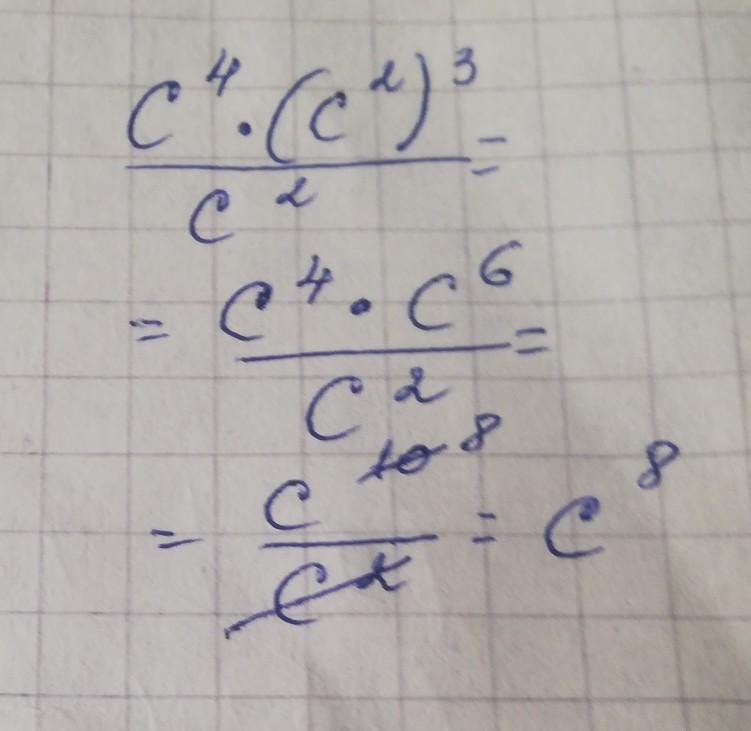 C⁴·(C²)³ / C² =
= C⁴·C⁶ / C² =
= C¹⁰ ⁸ / C² = C⁸